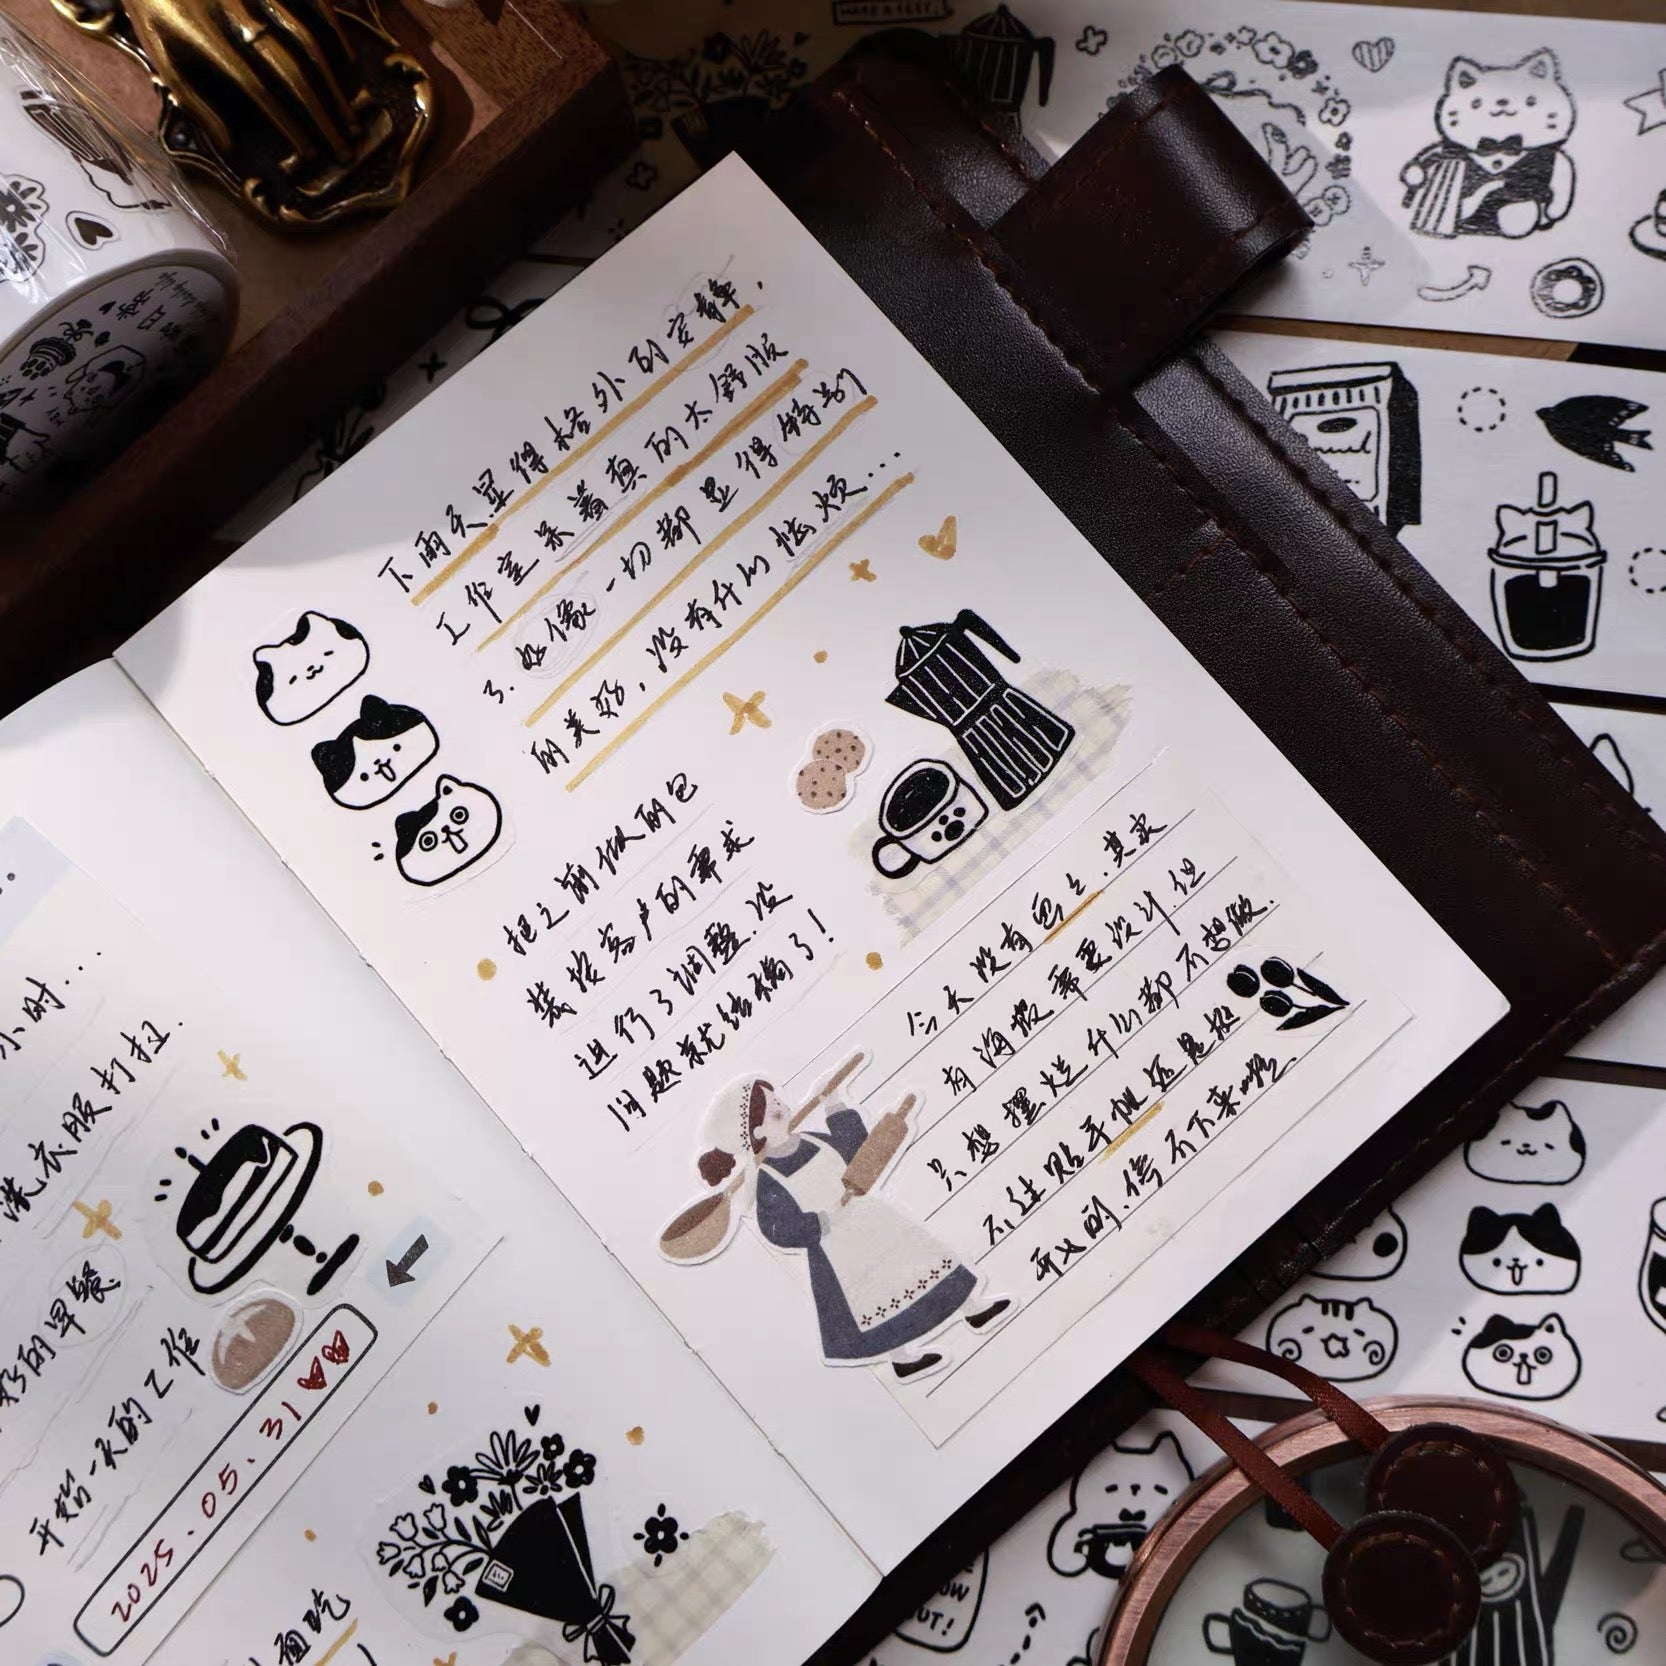 小时...
洗衣服打扫.
好的早餐
开始一天的工作
2025.05.31
面吃
下雨天显得格外的安静.
工作室呆着真的太舒服
了.好像一切都显得特别
的美好,没有什么恼烦...
把之前做的包
装按客户的需求
进行了调整.没
问题就结稿了!
今天没有画画.其实
有海报需要设计.但
只想摆烂什么都不想做.
不过贴手帐还是挺
开心的.停不下来哈